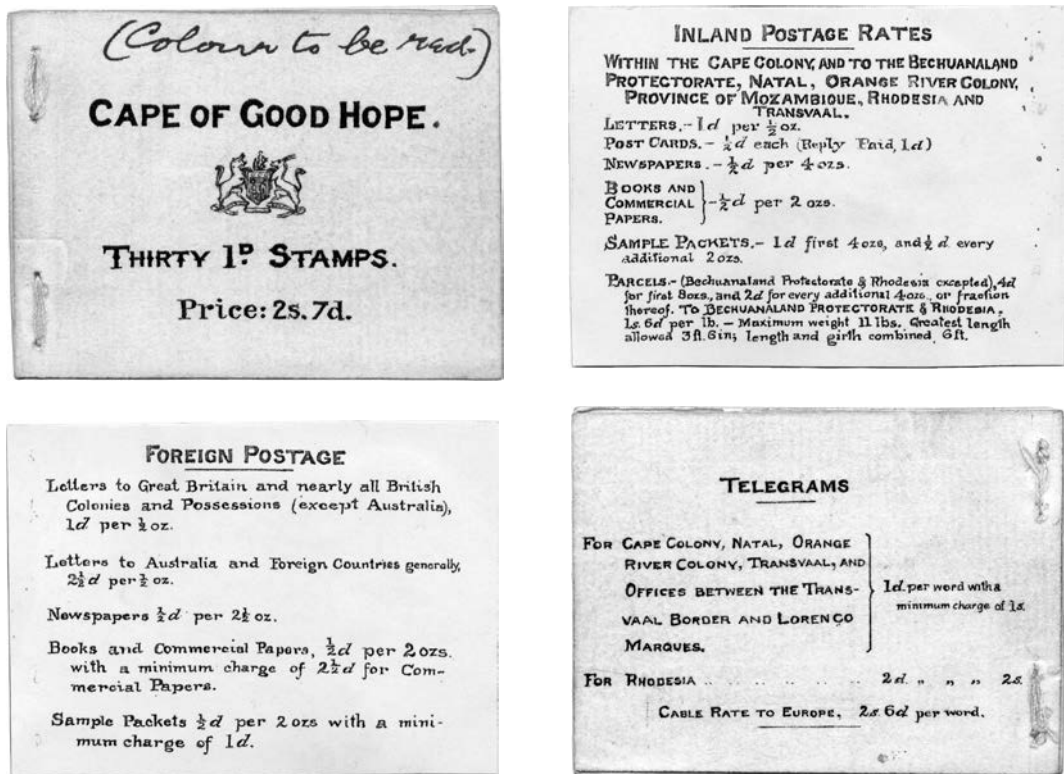 (Colour to be red.)
CAPE OF GOOD HOPE.
THIRTY 1D STAMPS.
Price: 2s. 7d.
INLAND POSTAGE RATES
WITHIN THE CAPE COLONY, AND TO THE BECHUANALAND
PROTECTORATE, NATAL, ORANGE RIVER COLONY,
PROVINCE OF MOZAMBIQUE, RHODESIA AND
TRANSVAAL.
LETTERS.- 1d per ½ oz.
POST CARDS.- ½d each (Reply Paid, 1d)
NEWSPAPERS.- ½d per 4 ozs.
BOOKS AND
COMMERCIAL
PAPERS.
-½d per 2 ozs.
SAMPLE PACKETS.- 1d first 4 ozs, and ½d every
additional 2 ozs.
PARCELS.- (Bechuanaland Protectorate & Rhodesia excepted), 4d
for first 8 ozs., and 2d for every additional 4 ozs., or fraction
thereof. TO BECHUANALAND PROTECTORATE & RHODESIA,
1s. 6d per lb. – Maximum weight 11 lbs. Greatest length
allowed 3ft. 6in; length and girth combined, 6ft.
FOREIGN POSTAGE
Letters to Great Britain and nearly all British
Colonies and Possessions (except Australia),
1d per ½ oz.
Letters to Australia and Foreign Countries generally,
2½d per ½ oz.
Newspapers ½d per 2½ oz.
Books and Commercial Papers, ½d per 2 ozs.
with a minimum charge of 2½d for Com-
mercial Papers.
Sample Packets ½d per 2 ozs with a mini-
mum charge of 1d.
TELEGRAMS
FOR CAPE COLONY, NATAL, ORANGE
RIVER COLONY, TRANSVAAL, AND
OFFICES BETWEEN THE TRANS-
VAAL BORDER AND LORENÇO
MARQUES.
1d. per word with a
minimum charge of 1s.
FOR RHODESIA .. .. .. .. .. .. 2d. „ „ „ 2s.
CABLE RATE TO EUROPE, 2s. 6d per word.